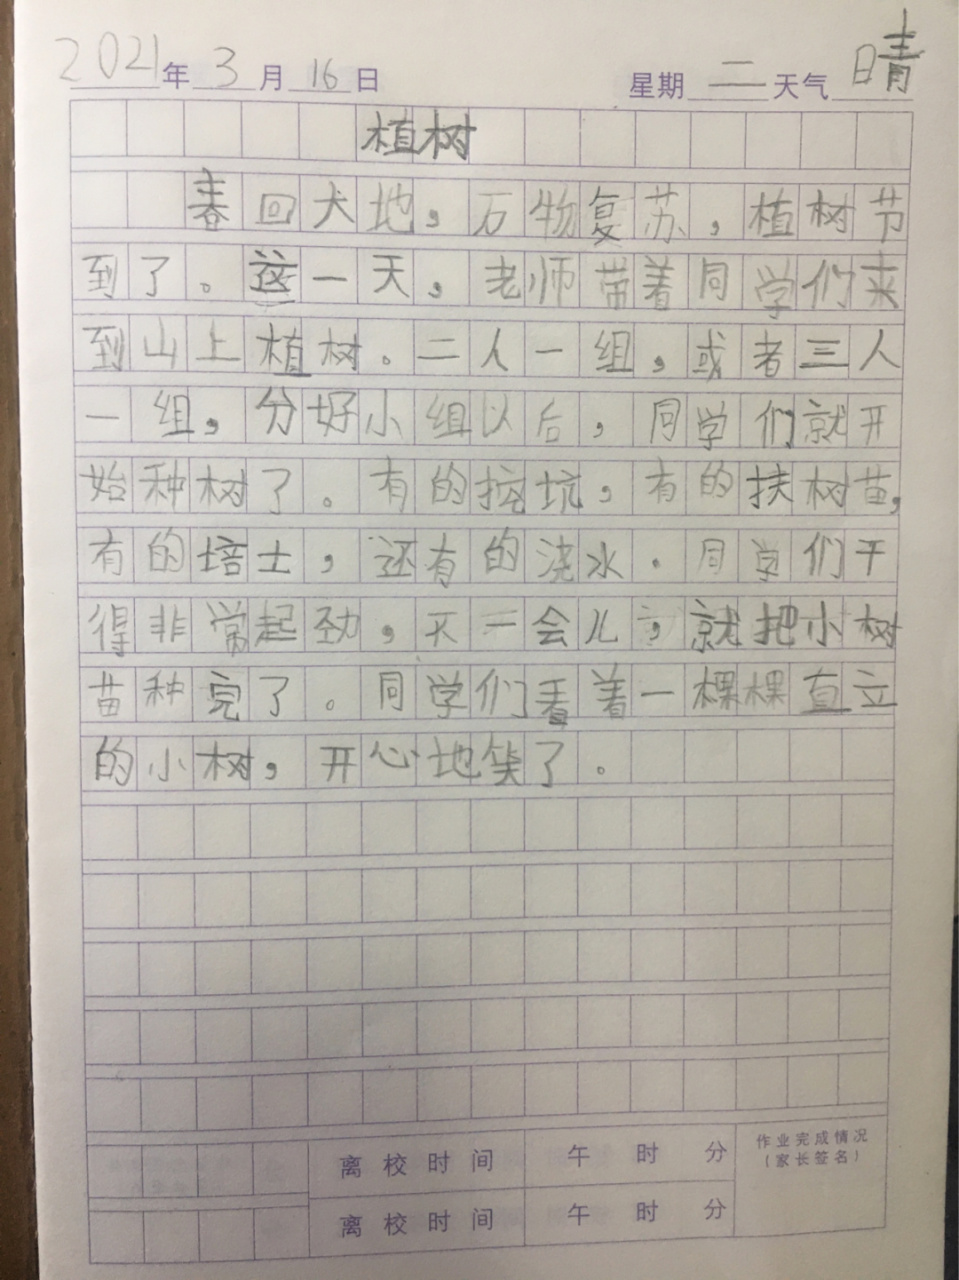 2021年3月16日 星期二天气晴
植树
春回大地，万物复苏，植树节
到了。这一天，老师带着同学们来
到山上植树。二人一组，或者三人
一组，分好小组以后，同学们就开
始种树了。有的挖坑，有的扶树苗，
有的培土，还有的浇水。同学们干
得非常起劲，不一会儿，就把小树
苗种完了。同学们看着一棵棵直立
的小树，开心地笑了。
作业完成情况
（家长签名）
离校时间 午 时 分
离校时间 午 时 分